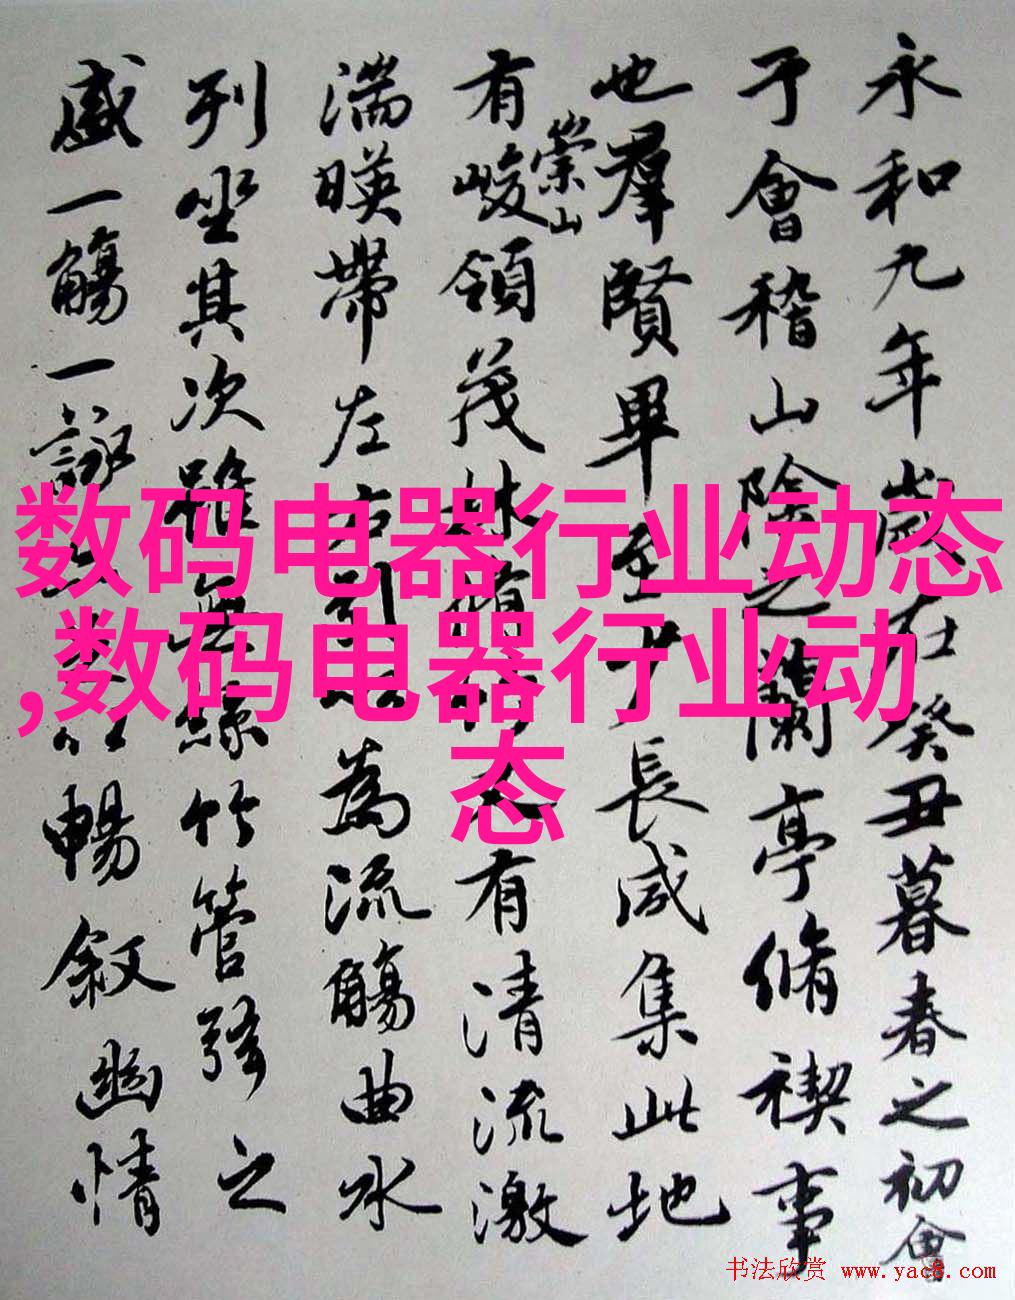 永和九年歲在癸丑暮春之初會
于會稽山陰之蘭亭脩禊事
也羣賢畢至少長咸集此地
有崇山峻領茂林脩竹又有清流激
湍暎帶左右引以為流觴曲水
列坐其次雖無絲竹管弦之
盛一觴一詠亦足以暢叙幽情
数码电器行业动态
,数码电器行业动
态
书法欣赏 www.yac8.com